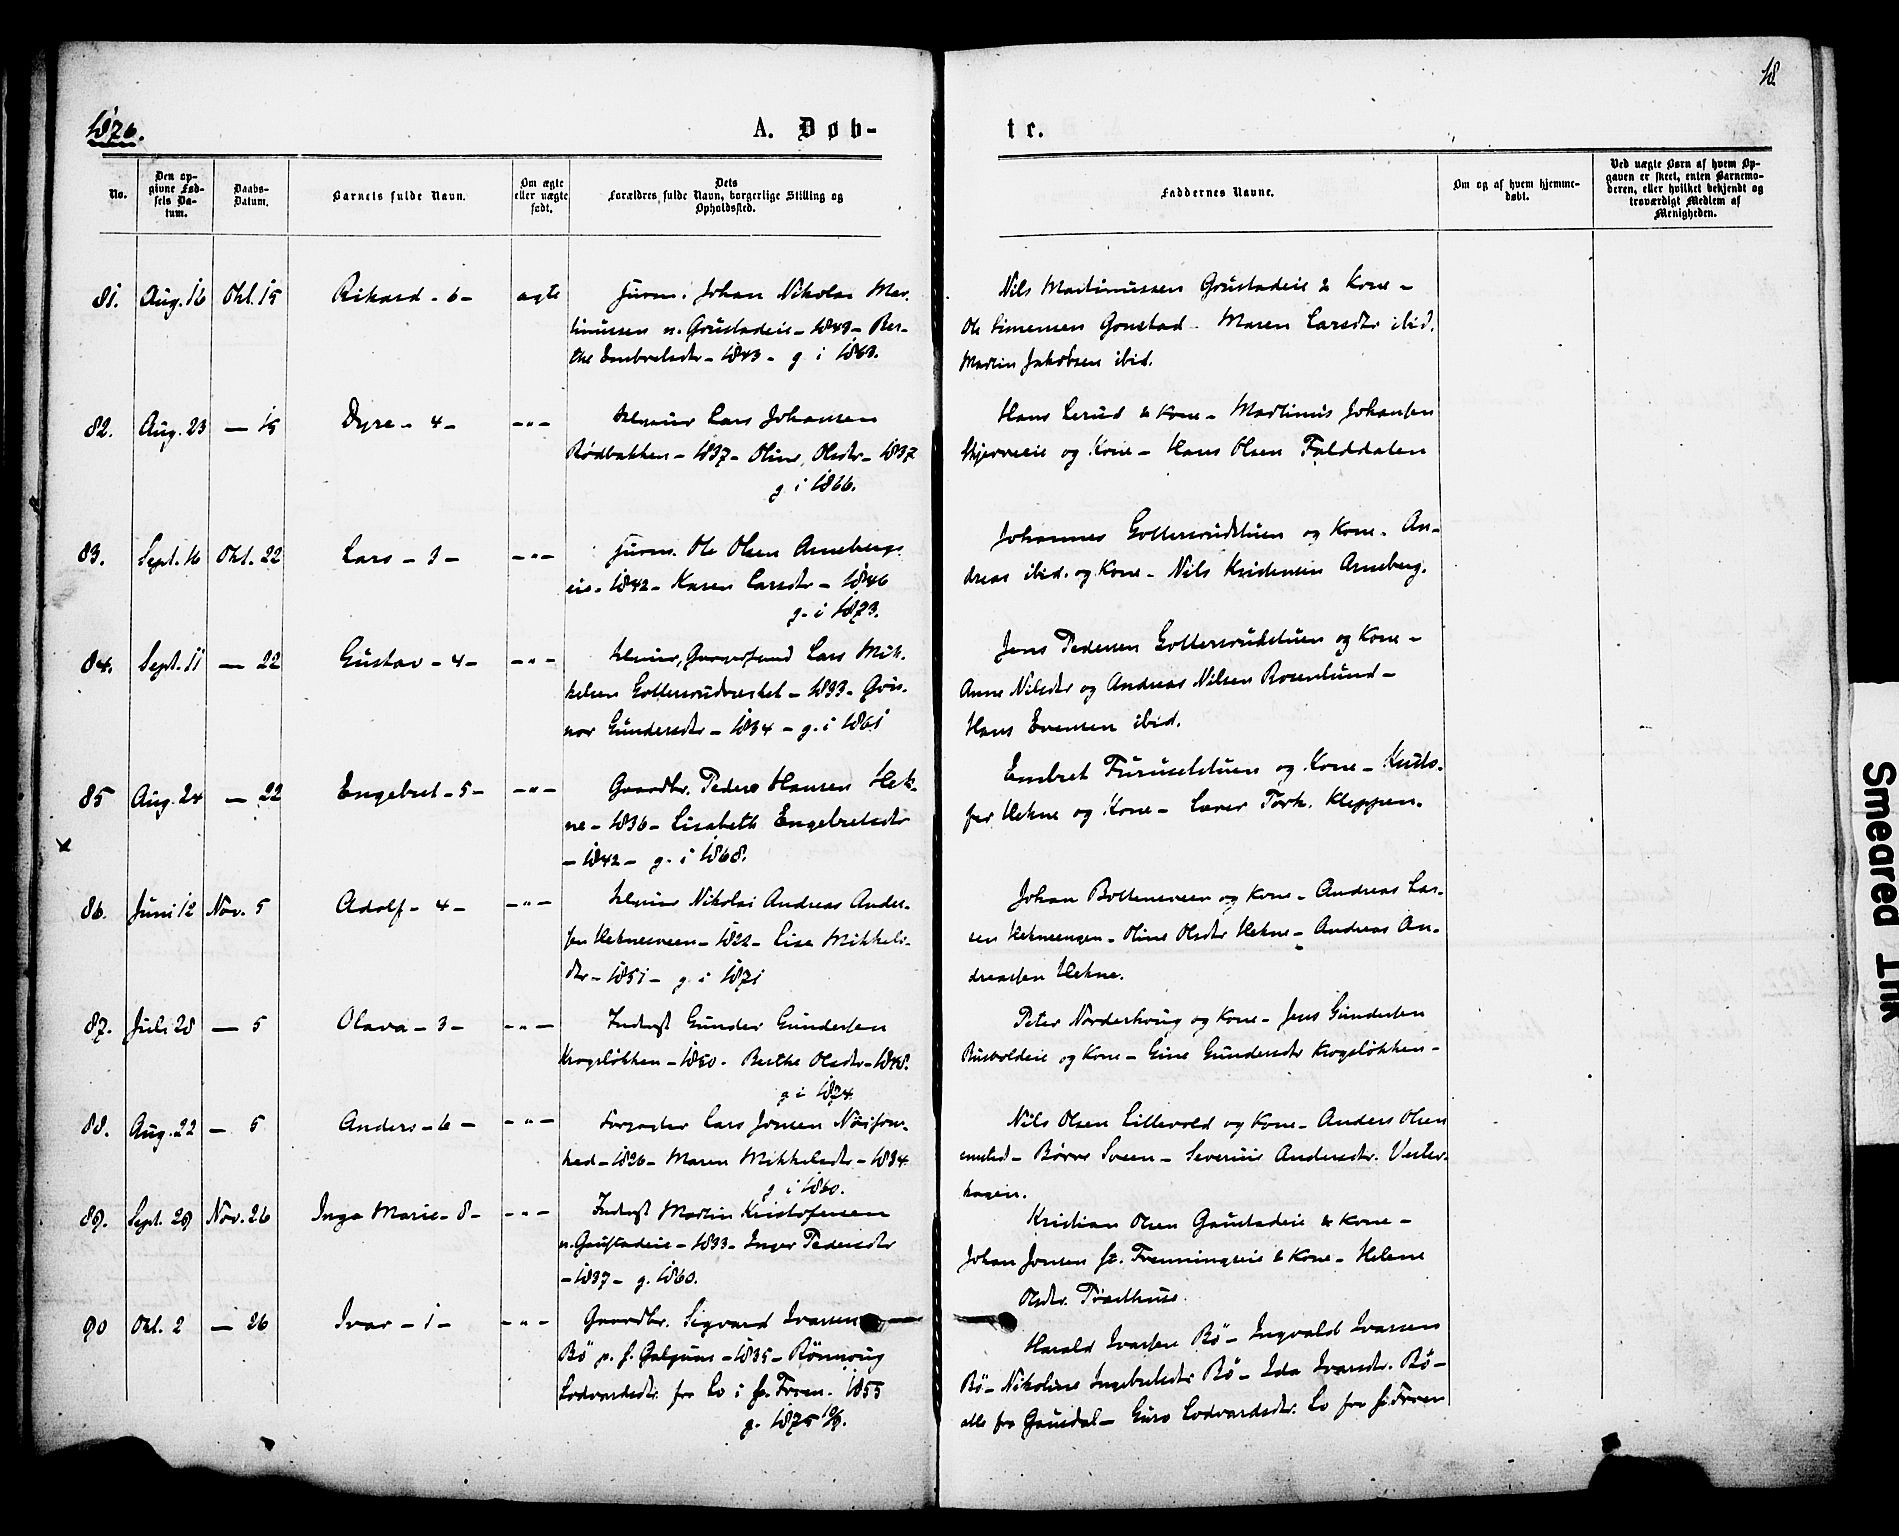 18
1876.
A. Døb-
te.
No.
Den op-
givne Fød-
sels Da-
tum.
Daabs-
Datum.
Barnets fulde Navn.
Om ægte
eller uægte
født.
Dets
Forældres fulde Navn, borgerlige Stilling og
Opholdssted.
Faddernes Navne.
Om og af hvem hjemme-
døbt.
Ved uægte Børn af hvem Op-
gaven er skeet, enten Barnemo-
deren, eller hvilket bekjendt og
troværdigt Medlem af
Menigheden.
81. Aug. 16 Okt. 15 Rikard - 6 - ægte
Johan Nikolai Mar-
tinussen n. Gaustadeie - 1843 - Ber-
the Embretsdtr - 1843 - g. i 1863.
Nils Martinussen Gaustadeie & Kone -
Ole Simensen Gaustad - Maren Larsdtr ibid.
Martin Jakobsen ibid.
82. Aug. 23 — 15 Dyre - 4 - -"-
Lars Johansen
Rødbakken - 1837 - Oline Olsdtr - 1837
g. i 1866.
Hans Lerud & Kone - Martinus Johansen
og Kone - Hans Olsen Falddalen
83. Sept. 16 Okt. 22 Lars - 3 - -"-
Ole Olsen Arnebergs-
eie - 1842 - Karen Larsdtr - 1846
g. i 1873.
Johannes Gottersrudstuen og Kone - An-
dreas ibid. og Kone - Nils Kristensen Arneberg.
84. Sept. 11 — 22 Gustav - 4 - -"-
Lars Mik-
kelsen - 1833 - Gui-
nor Gundersdtr - 1834 - g. i 1861
Jens Pedersen Gottersrudstuen og Kone -
Anne Nilsdtr og Andreas Nilsen Rosenlund -
Hans Evensen ibid.
85 Aug. 24 — 22 Engebret - 5 - -"-
Gaardbr. Peder Hansen Hek-
ne - 1836 - Lisabeth Engebretsdtr
- 1842 - g. i 1868.
Embret Furusetstuen og Kone - Kristo-
fer Hekne og Kone - Lærer Tork. Kleppen.
86. Juni 12 Nov. 5 Adolf - 4 - -"-
Nikolai Andreas Ander-
sen Heknesveen - 1822 - Lisa Mikkels-
dtr - 1851 - g. i 1871
Johan Bottensveen og Kone - Andreas Lar-
sen Hekneengen - Oline Olsdtr Hekne - Andreas An-
dreassen Hekne.
87. Juli 28 — 5 Olava - 3 - -"-
Inderst Gunder Gundersen
Krogsløkken - 1850 - Berthe Olsdtr - 1848.
g. i 1874.
Peter Norderhoug og Kone - Jens Gundersen
og Kone - Gine Gundersdtr Krogsløkken -
88. Aug. 22 — 5 Anders - 6 - -"-
Forpagter Lars Jonsen
- 1826 - Maren Mikkelsdtr - 1834
g. i 1860.
Nils Olsen Lillevold og Kone - Anders Olsen
- Børre Sveen - Severine Andersdtr. Vester-
hagen.
89. Sept. 29 Nov. 26 Inga Marie - 8 - -"-
Inderst Martin Kristofersen
n. Gaustadeie - 1833 - Inger Pedersdtr
- 1837 - g. 1860.
Kristian Olsen Gaustadeie & Kone -
Johan Jonsen & Kone - Helene
Olsdtr.
90 Okt. 2 — 26 Ivar - 1 - -"-
Gaardbr. Sigvard Ivarsen
Bø - 1835 - Rønnoug
Lodvardsdtr. fra Lo i Fron - 1855
g. 1875
Harald Ivarsen Bø - Ingvald Ivarsen
Bø - Nikoline Ingebretsdtr Bø - Ida Ivarsdtr. Bø -
alle fra Gausdal - Guro Lodvardsdtr. Lo fra Fron
Smeared Ink